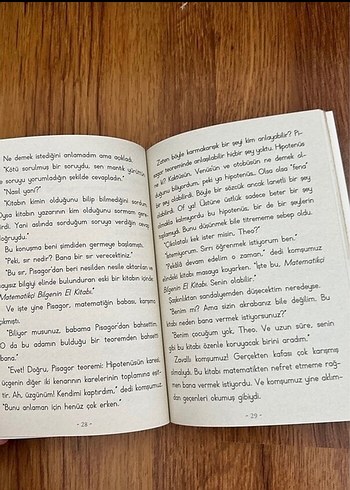 Ne demek istediğini anlamadım ama açıkladı.
"Kötü sorulmuş bir soruydu, sen mantık yürütüp
o soruyu yorumladığın şekilde cevapladın."
"Nasıl yani?"
"Kitabın kimin olduğunu bilip bilmediğini sordun.
Oysa kitabın yazarının kim olduğunu sorman gere-
irdi. Yani aslında sorduğum soruya verdiğin cevap
doğruydu."
Bu konuşma beni şimdiden germeye başlamıştı.
"Peki, sır nedir? Bana bir sır verecektiniz."
"Bu sır, Pisagordan beri nesilden nesile aktarılan ve
sayısız bilgiyi elinde bulunduran eski bir kitabın içinde:
Matematiği Bilgenin El Kitabı."
Ve işte yine Pisagor, matematiğin babası, karşıma
çıkmıştı.
"Biliyor musunuz, babama Pisagordan bahsettim.
O da bu adamın bulduğu bir teoremden bahsetti
bana."
"Evet! Doğru, Pisagor teoremi: Hipotenüsün karesi,
üçgenin diğer iki kenarının karelerinin toplamına eşit-
tir. Ah, üzgünüm! Kendimi kaptırdım," dedi komşumuz.
"Bunu anlaman için henüz çok erken."
- 28 -
Zaten böyle karmakarışık bir şeyi kim anlayabilir? Pi-
sagor teoreminde anlaşılabilir hiçbir şey yoktu. Hipotenüs
ne ki? Kaktüsün, Venüs'ün ve otobüsün ne demek ol-
duğunu biliyordum, peki ya hipotenüs. Olsa olsa "fena"
bir şey olabilirdi. Böyle bir sözcük ancak lanetli bir şey
olabilirdi. Of ya! Üstüne üstlük sadece beter bir şey
olmakla kalmıyordu bu hipotenüs, bir de bir şeylerin
toplamıydı. Bunu düşünmek bile titrememe sebep oldu.
"Çikolatalı kek ister misin, Theo?"
"İstemiyorum. Sırrı öğrenmek istiyorum ben."
"Pekâlâ devam edelim o zaman," dedi komşumuz
elindeki kitabı masaya koyarken. "İşte bu, Matematiği
Bilgenin El Kitabı. Senin olabilir."
Şaşkınlıktan sandalyemden düşecektim neredeyse.
"Benim mi? Ama sizin akrabanız bile değilim. Bu
kitabı neden bana vermek istiyorsunuz?"
"Benim çocuğum yok, Theo. Ve uzun süre, senin
gibi bu kitabı özenle koruyacak birini aradım."
Zavallı komşumuz! Gerçekten kafası çok karışmış
olmalıydı. Bu kitabı matematikten nefret etmeme rağ-
men bana vermek istiyordu. Ve komşumuz yine aklım-
dan geçenleri okumuş gibiydi.
- 29 -